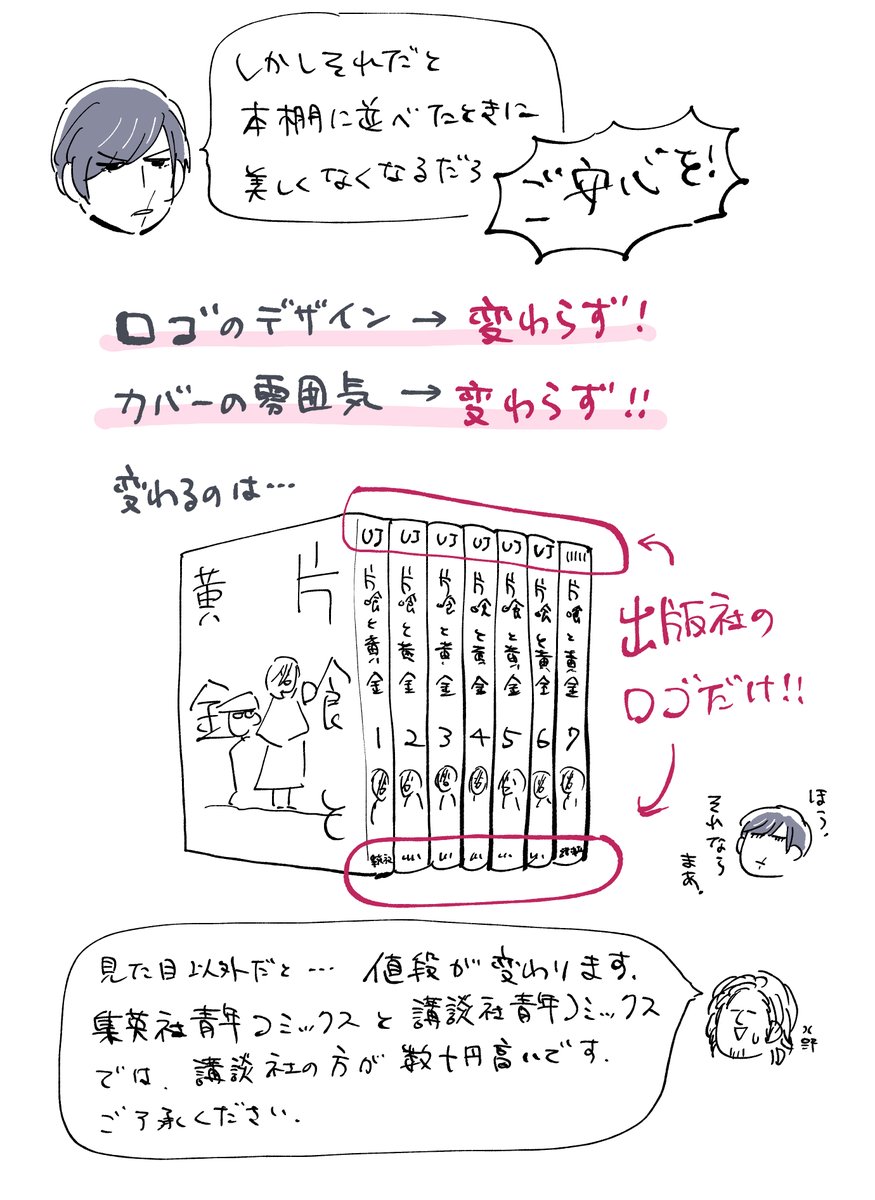 しかしそれだと
本棚に並べたときに
美しくなくなるだろ
ご安心を!
ロゴのデザイン→変わらず!
カバーの雰囲気→変わらず!!
変わるのは…
片喰と
黄金
UJ
片喰と黄金
1
UJ
片喰と黄金
2
UJ
片喰と黄金
3
UJ
片喰と黄金
4
UJ
片喰と黄金
5
UJ
片喰と黄金
6
片喰と黄金
7
出版社の
ロゴだけ!!
ほう、
それなら
まあ。
見た目以外だと… 値段が変わります。
集英社青年コミックスと講談社青年コミックス
では、講談社の方が数十円高いです。
ご了承ください。